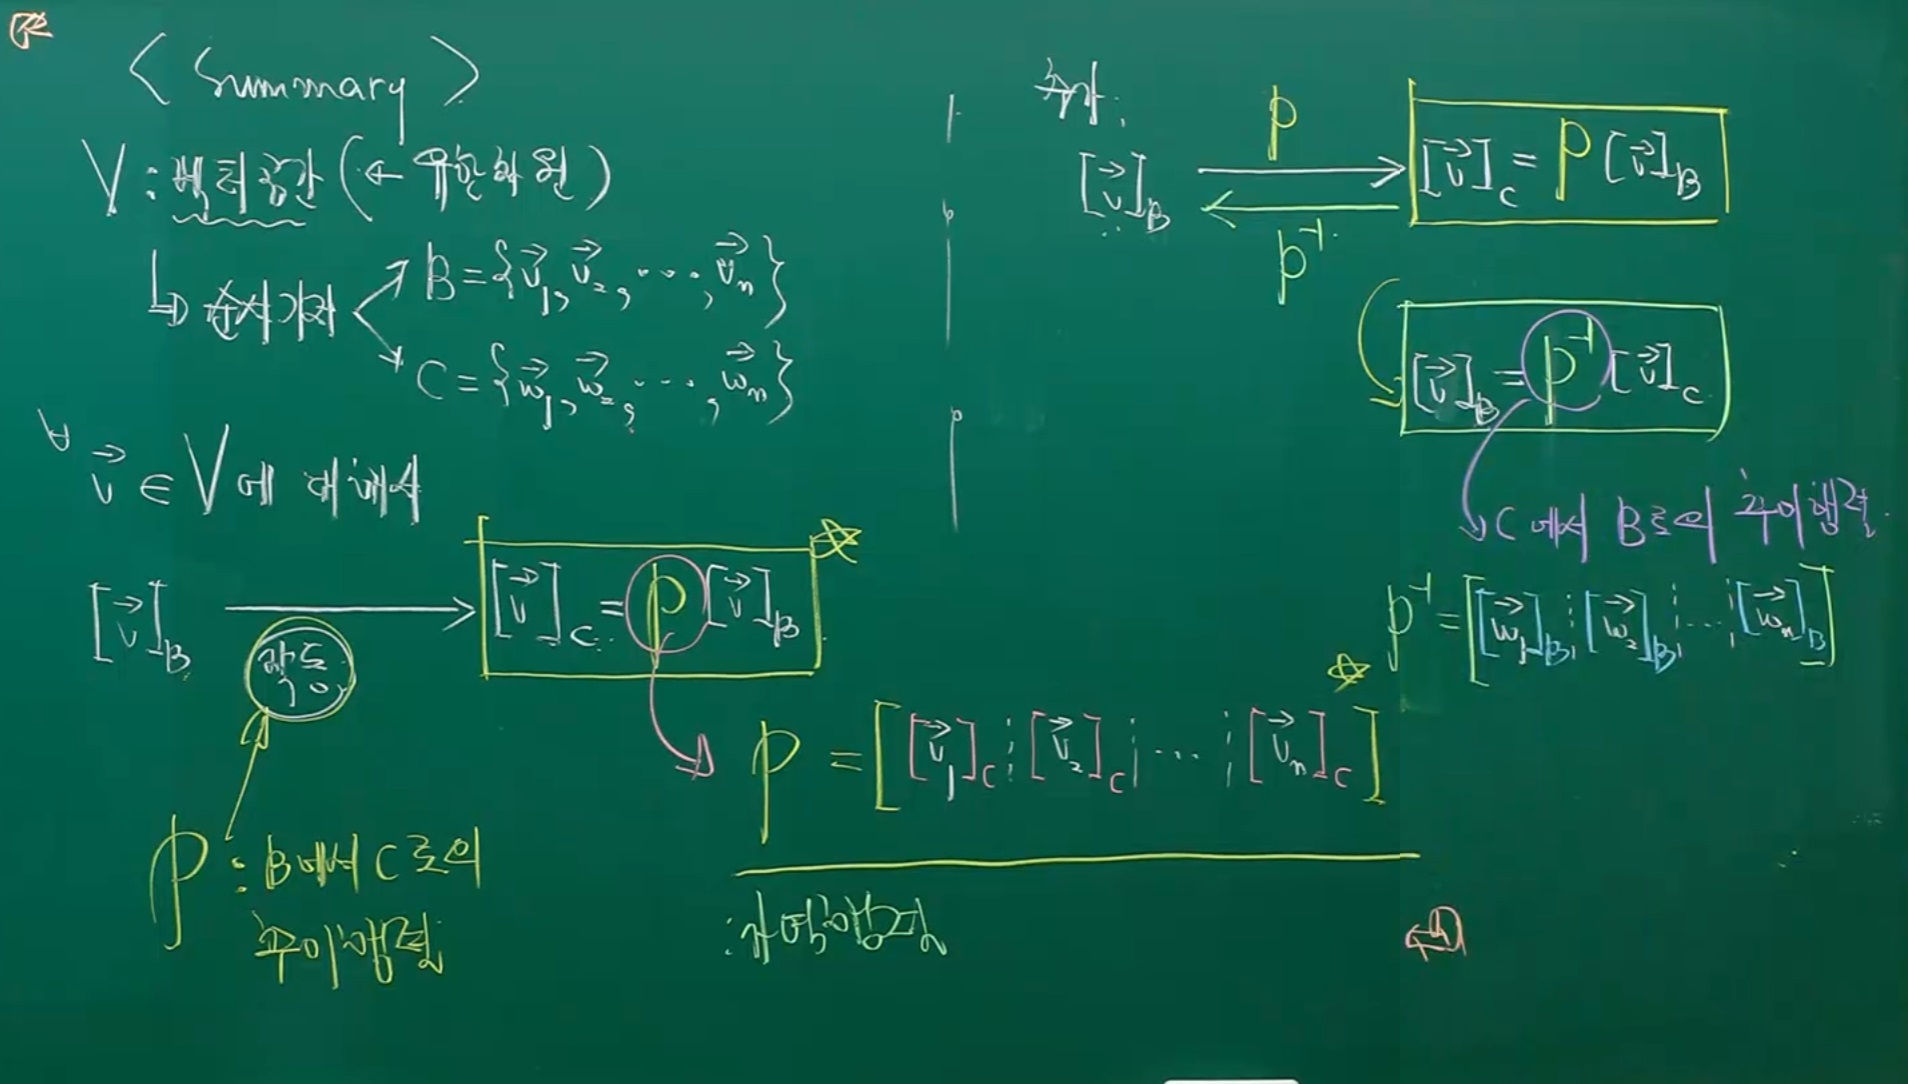 < Summary >
V : 벡터공간 (← 유한차원)
↳ 순서기저
B = {v⃗₁, v⃗₂, ⋯, v⃗ₙ}
C = {w⃗₁, w⃗₂, ⋯, w⃗ₙ}
∀ v⃗ ∈ V에 대해서
[v⃗]_B → [v⃗]_C = P [v⃗]_B
작동
P : B에서 C로의
추이행렬
P = [[v⃗₁]_C ⋮ [v⃗₂]_C ⋮ ⋯ ⋮ [v⃗ₙ]_C]
: 가역행렬
추가.
P
[v⃗]_B ⇄ [v⃗]_C = P [v⃗]_B
P⁻¹
[v⃗]_B = P⁻¹ [v⃗]_C
C에서 B로의 추이행렬.
P⁻¹ = [[w⃗₁]_B ⋮ [w⃗₂]_B ⋮ ⋯ ⋮ [w⃗ₙ]_B]